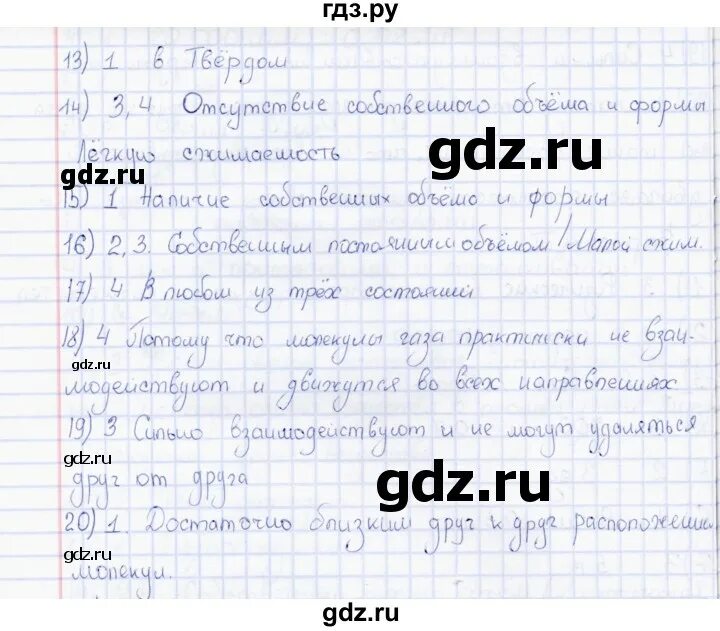 гдз.ру
13) 1 в Твёрдом
14) 3,4 Отсутствие собственного объёма и формы
gdz.ru
Лёгкую сжимаемость
gdz.ru
15) 1 Наличие собственных объёма и формы
16) 2,3. Собственным постоянным объёмом / Малой сжим.
17) 4 В любом из трёх состояний
18) 4 Потому что молекулы газа практически не взаи-
gdz.ru
модействуют и движутся во всех направлениях
19) 3 Сильно взаимодействуют и не могут удаляться
gdz.ru
друг от друга
gdz.ru
20) 1. Достаточно близким друг к друг расположени
gdz.ru
молекул.
gdz.ru